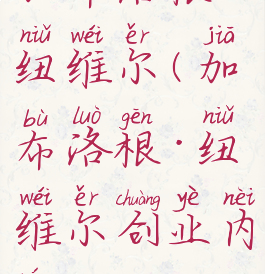 niǔ wéi ěr jiā
纽维尔(加
bù luò gēn niǔ
布洛根·纽
wéi ěr chuàng yè nèi
维尔创业内